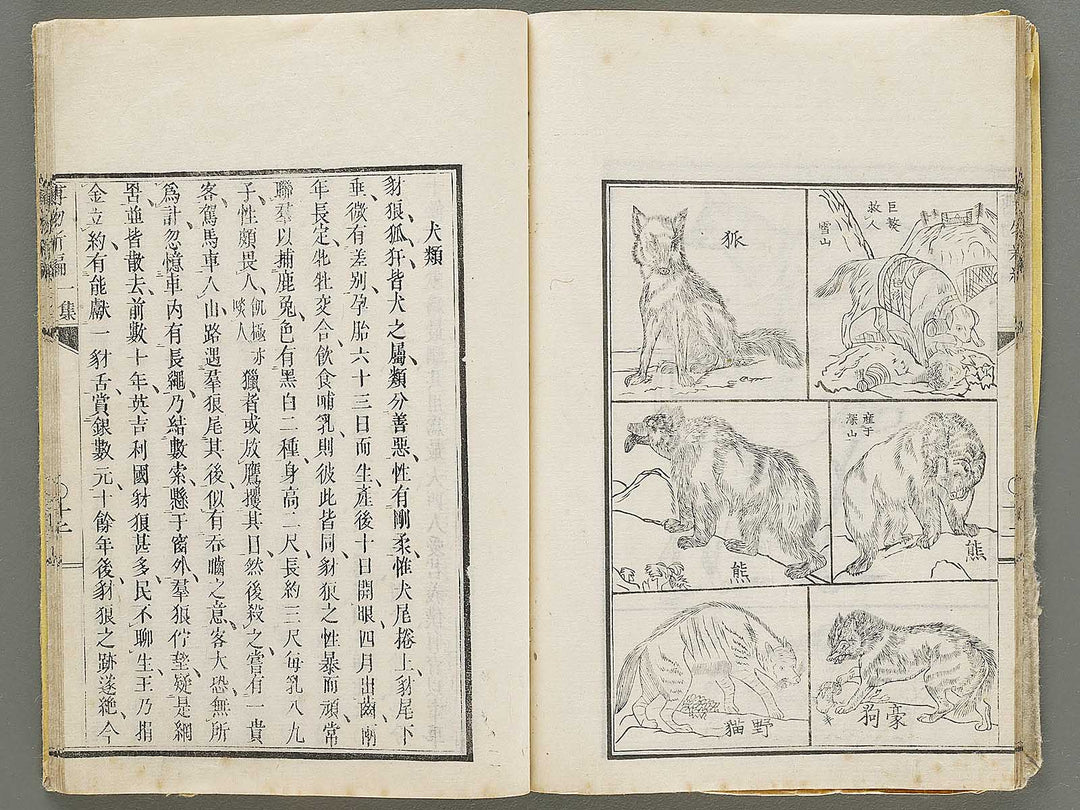 巨獒
救人
雪山
狐
產于
深山
熊
熊
豪狗
野貓
犬類
豺狼、狐犴、皆犬之屬、類分善惡、性有剛柔、惟犬尾捲上、豺尾下
垂、微有差別、孕胎六十三日而生、產後十日開眼、四月出齒、兩
年長定、牝牡交合、飲食哺乳、則彼此皆同、豺狼之性、暴而頑、常
聯羣以捕鹿兔、色有黑白二種、身高二尺、長約三尺、每乳八九
子、性頗畏人、飢極亦啖人獵者或放鷹攫其目、然後殺之、嘗有一貴
客、駕馬車入山、路遇羣狼、尾其後、似有吞嚙之意、客大恐、無所
爲計、忽憶車內有長繩、乃結數索、懸于窗外、羣狼佇望、疑是網
罟、並皆散去、前數十年、英吉利國豺狼甚多、民不聊生、王乃捐
金立約、有能獻一豺舌、賞銀數元、十餘年後、豺狼之跡遂絶、今
博物新編
集